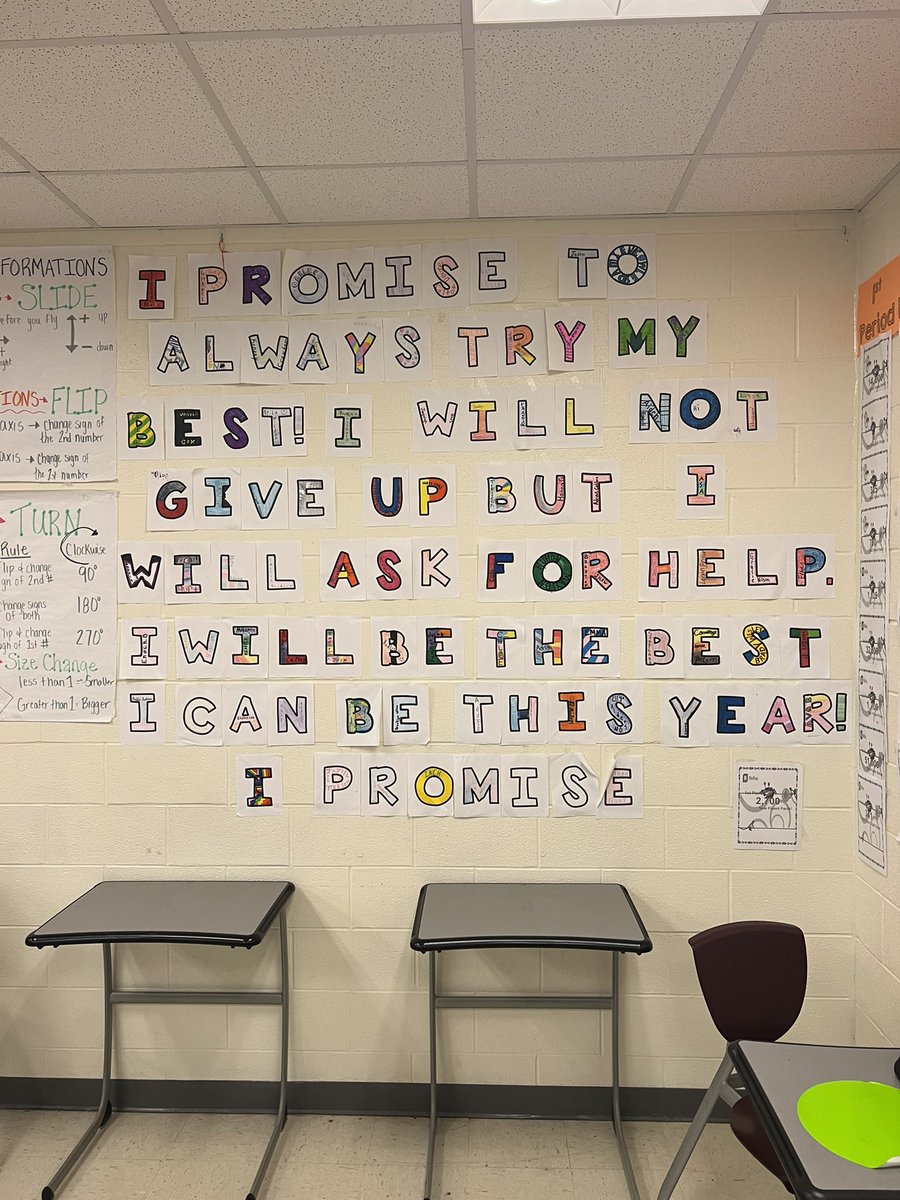 FORMATIONS
SLIDE
efore you fly
+ UP
- down
+
right
IONS → FLIP
axis → Change sign of
the 2nd number
axis → Change sign of
the 1st number
TURN
Rule
Clockwise
Flip & change
sign of 2nd #
90°
Change signs
of both
180°
Flip & change
sign of 1st #
270°
Size Change
less than 1 → Smaller
Greater than 1 = Bigger
I PROMISE TO
ALWAYS TRY MY
BEST! I WILL NOT
GIVE UP BUT I
WILL ASK FOR HELP.
I WILL BE THE BEST
I CAN BE THIS YEAR!
I PROMISE
1st
Period
2,700